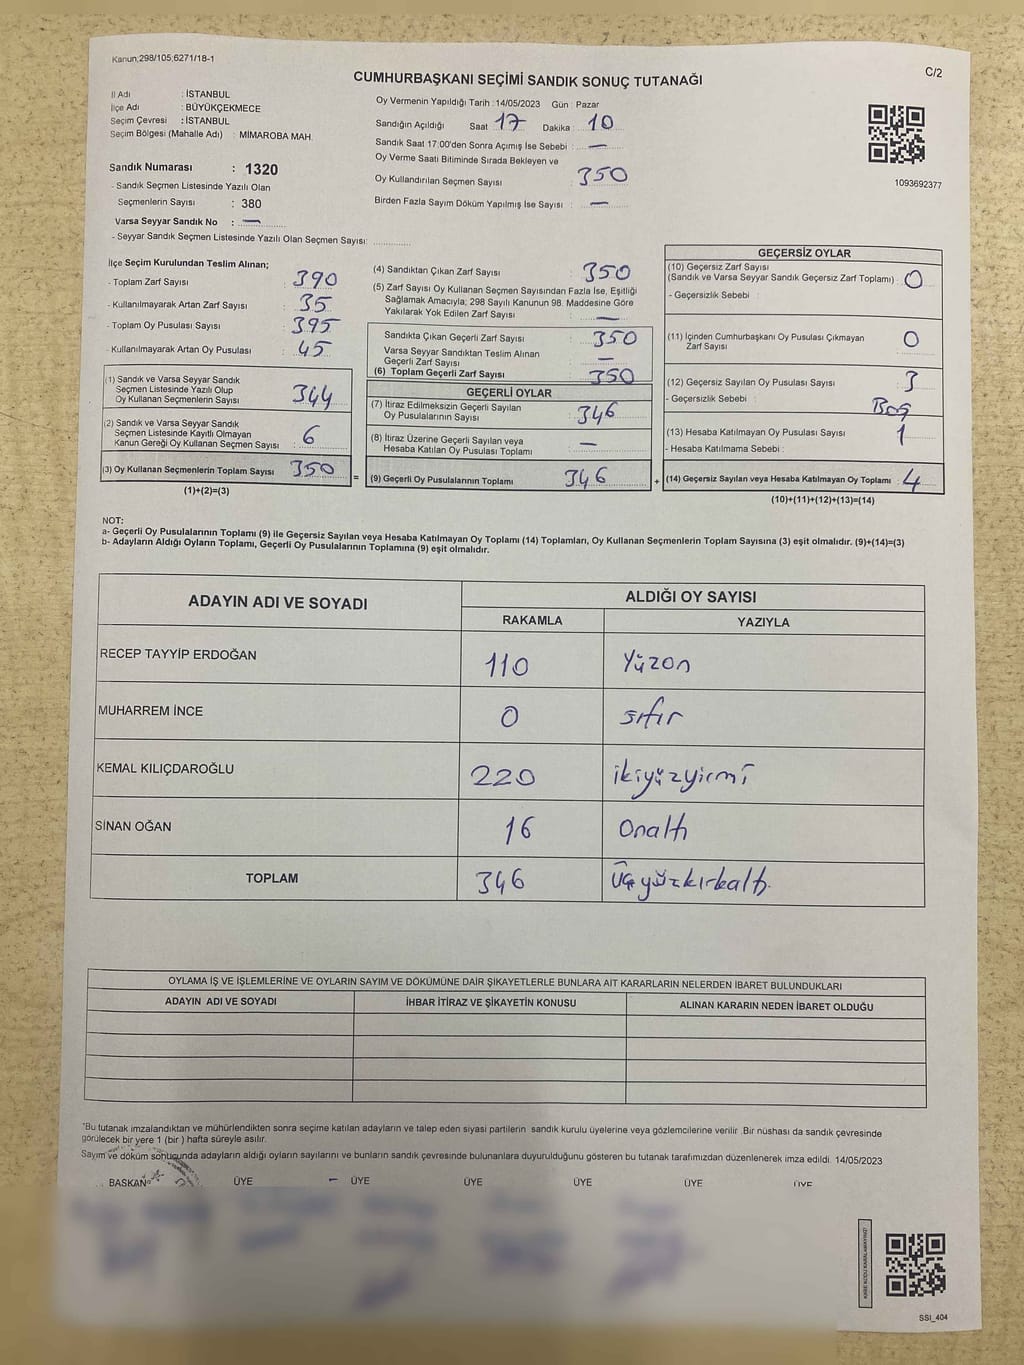 Kanun;298/105;6271/18-1
C/2
CUMHURBAŞKANI SEÇİMİ SANDIK SONUÇ TUTANAĞI
İl Adı : İSTANBUL
İlçe Adı : BÜYÜKÇEKMECE
Seçim Çevresi : İSTANBUL
Seçim Bölgesi (Mahalle Adı) : MİMAROBA MAH.
Sandık Numarası : 1320
- Sandık Seçmen Listesinde Yazılı Olan
Seçmenlerin Sayısı : 380
Varsa Seyyar Sandık No : —
- Seyyar Sandık Seçmen Listesinde Yazılı Olan Seçmen Sayısı:
Oy Vermenin Yapıldığı Tarih :14/05/2023 Gün : Pazar
Sandığın Açıldığı Saat 17 Dakika 10
Sandık Saat 17:00'den Sonra Açımış İse Sebebi : —
Oy Verme Saati Bitiminde Sırada Bekleyen ve
Oy Kullandırılan Seçmen Sayısı : 350
Birden Fazla Sayım Döküm Yapılmış İse Sayısı : —
1093692377
İlçe Seçim Kurulundan Teslim Alınan;
- Toplam Zarf Sayısı : 390
- Kullanılmayarak Artan Zarf Sayısı : 35
- Toplam Oy Pusulası Sayısı : 395
- Kullanılmayarak Artan Oy Pusulası : 45
(1) Sandık ve Varsa Seyyar Sandık
Seçmen Listesinde Yazılı Olup
Oy Kullanan Seçmenlerin Sayısı : 344
(2) Sandık ve Varsa Seyyar Sandık
Seçmen Listesinde Kayıtlı Olmayan
Kanun Gereği Oy Kullanan Seçmen Sayısı : 6
(3) Oy Kullanan Seçmenlerin Toplam Sayısı : 350
(1)+(2)=(3)
(4) Sandıktan Çıkan Zarf Sayısı : 350
(5) Zarf Sayısı Oy Kullanan Seçmen Sayısından Fazla İse, Eşitliği
Sağlamak Amacıyla; 298 Sayılı Kanunun 98. Maddesine Göre
Yakılarak Yok Edilen Zarf Sayısı : —
Sandıkta Çıkan Geçerli Zarf Sayısı : 350
Varsa Seyyar Sandıktan Teslim Alınan
Geçerli Zarf Sayısı : —
(6) Toplam Geçerli Zarf Sayısı : 350
GEÇERLİ OYLAR
(7) İtiraz Edilmeksizin Geçerli Sayılan
Oy Pusulalarının Sayısı : 346
(8) İtiraz Üzerine Geçerli Sayılan veya
Hesaba Katılan Oy Pusulası Toplamı : —
= (9) Geçerli Oy Pusulalarının Toplamı : 346 +
GEÇERSİZ OYLAR
(10) Geçersiz Zarf Sayısı
(Sandık ve Varsa Seyyar Sandık Geçersiz Zarf Toplamı) : 0
- Geçersizlik Sebebi :
(11) İçinden Cumhurbaşkanı Oy Pusulası Çıkmayan
Zarf Sayısı : 0
(12) Geçersiz Sayılan Oy Pusulası Sayısı : 3
- Geçersizlik Sebebi : Boş
(13) Hesaba Katılmayan Oy Pusulası Sayısı : 1
- Hesaba Katılmama Sebebi :
(14) Geçersiz Sayılan veya Hesaba Katılmayan Oy Toplamı : 4
(10)+(11)+(12)+(13)=(14)
NOT:
a- Geçerli Oy Pusulalarının Toplamı (9) ile Geçersiz Sayılan veya Hesaba Katılmayan Oy Toplamı (14) Toplamları, Oy Kullanan Seçmenlerin Toplam Sayısına (3) eşit olmalıdır. (9)+(14)=(3)
b- Adayların Aldığı Oyların Toplamı, Geçerli Oy Pusulalarının Toplamına (9) eşit olmalıdır.
ADAYIN ADI VE SOYADI ALDIĞI OY SAYISI
RAKAMLA YAZIYLA
RECEP TAYYİP ERDOĞAN 110 Yüzon
MUHARREM İNCE 0 sıfır
KEMAL KILIÇDAROĞLU 220 ikiyüzyirmi
SİNAN OĞAN 16 Onaltı
TOPLAM 346 Üçyüzkırkaltı
OYLAMA İŞ VE İŞLEMLERİNE VE OYLARIN SAYIM VE DÖKÜMÜNE DAİR ŞİKAYETLERLE BUNLARA AİT KARARLARIN NELERDEN İBARET BULUNDUKLARI
ADAYIN ADI VE SOYADI İHBAR İTİRAZ VE ŞİKAYETİN KONUSU ALINAN KARARIN NEDEN İBARET OLDUĞU
"Bu tutanak imzalandıktan ve mühürlendikten sonra seçime katılan adayların ve talep eden siyasi partilerin sandık kurulu üyelerine veya gözlemcilerine verilir .Bir nüshası da sandık çevresinde
görülecek bir yere 1 (bir ) hafta süreyle asılır.
Sayım ve döküm sonucunda adayların aldığı oyların sayılarını ve bunların sandık çevresinde bulunanlara duyurulduğunu gösteren bu tutanak tarafımızdan düzenlenerek imza edildi. 14/05/2023
BAŞKAN ÜYE ÜYE ÜYE ÜYE ÜYE ÜYE
KARE KODU KARALAMAYINIZ!
SSI_404